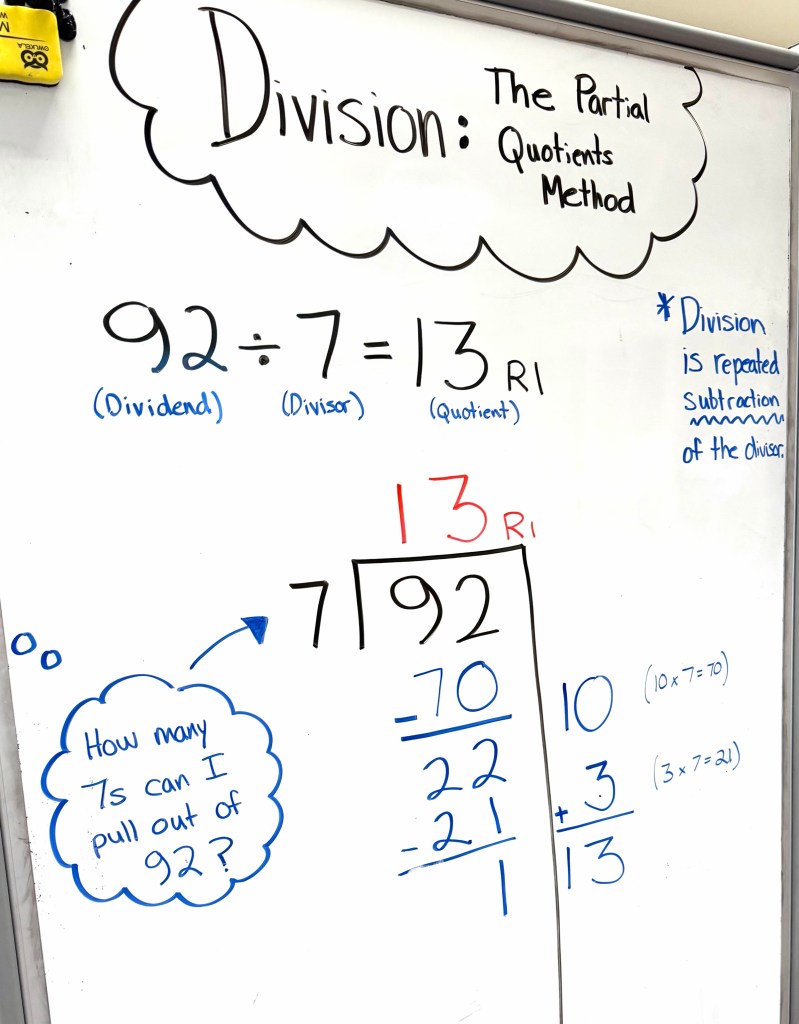 Division:
The Partial
Quotients
Method
92 ÷ 7 = 13 R1
(Dividend) (Divisor) (Quotient)
* Division
is repeated
subtraction
of the divisor.
13 R1
7 92
-70 10 (10 x 7 = 70)
22
-21 + 3 (3 x 7 = 21)
1 13
How many
7s can I
pull out of
92?